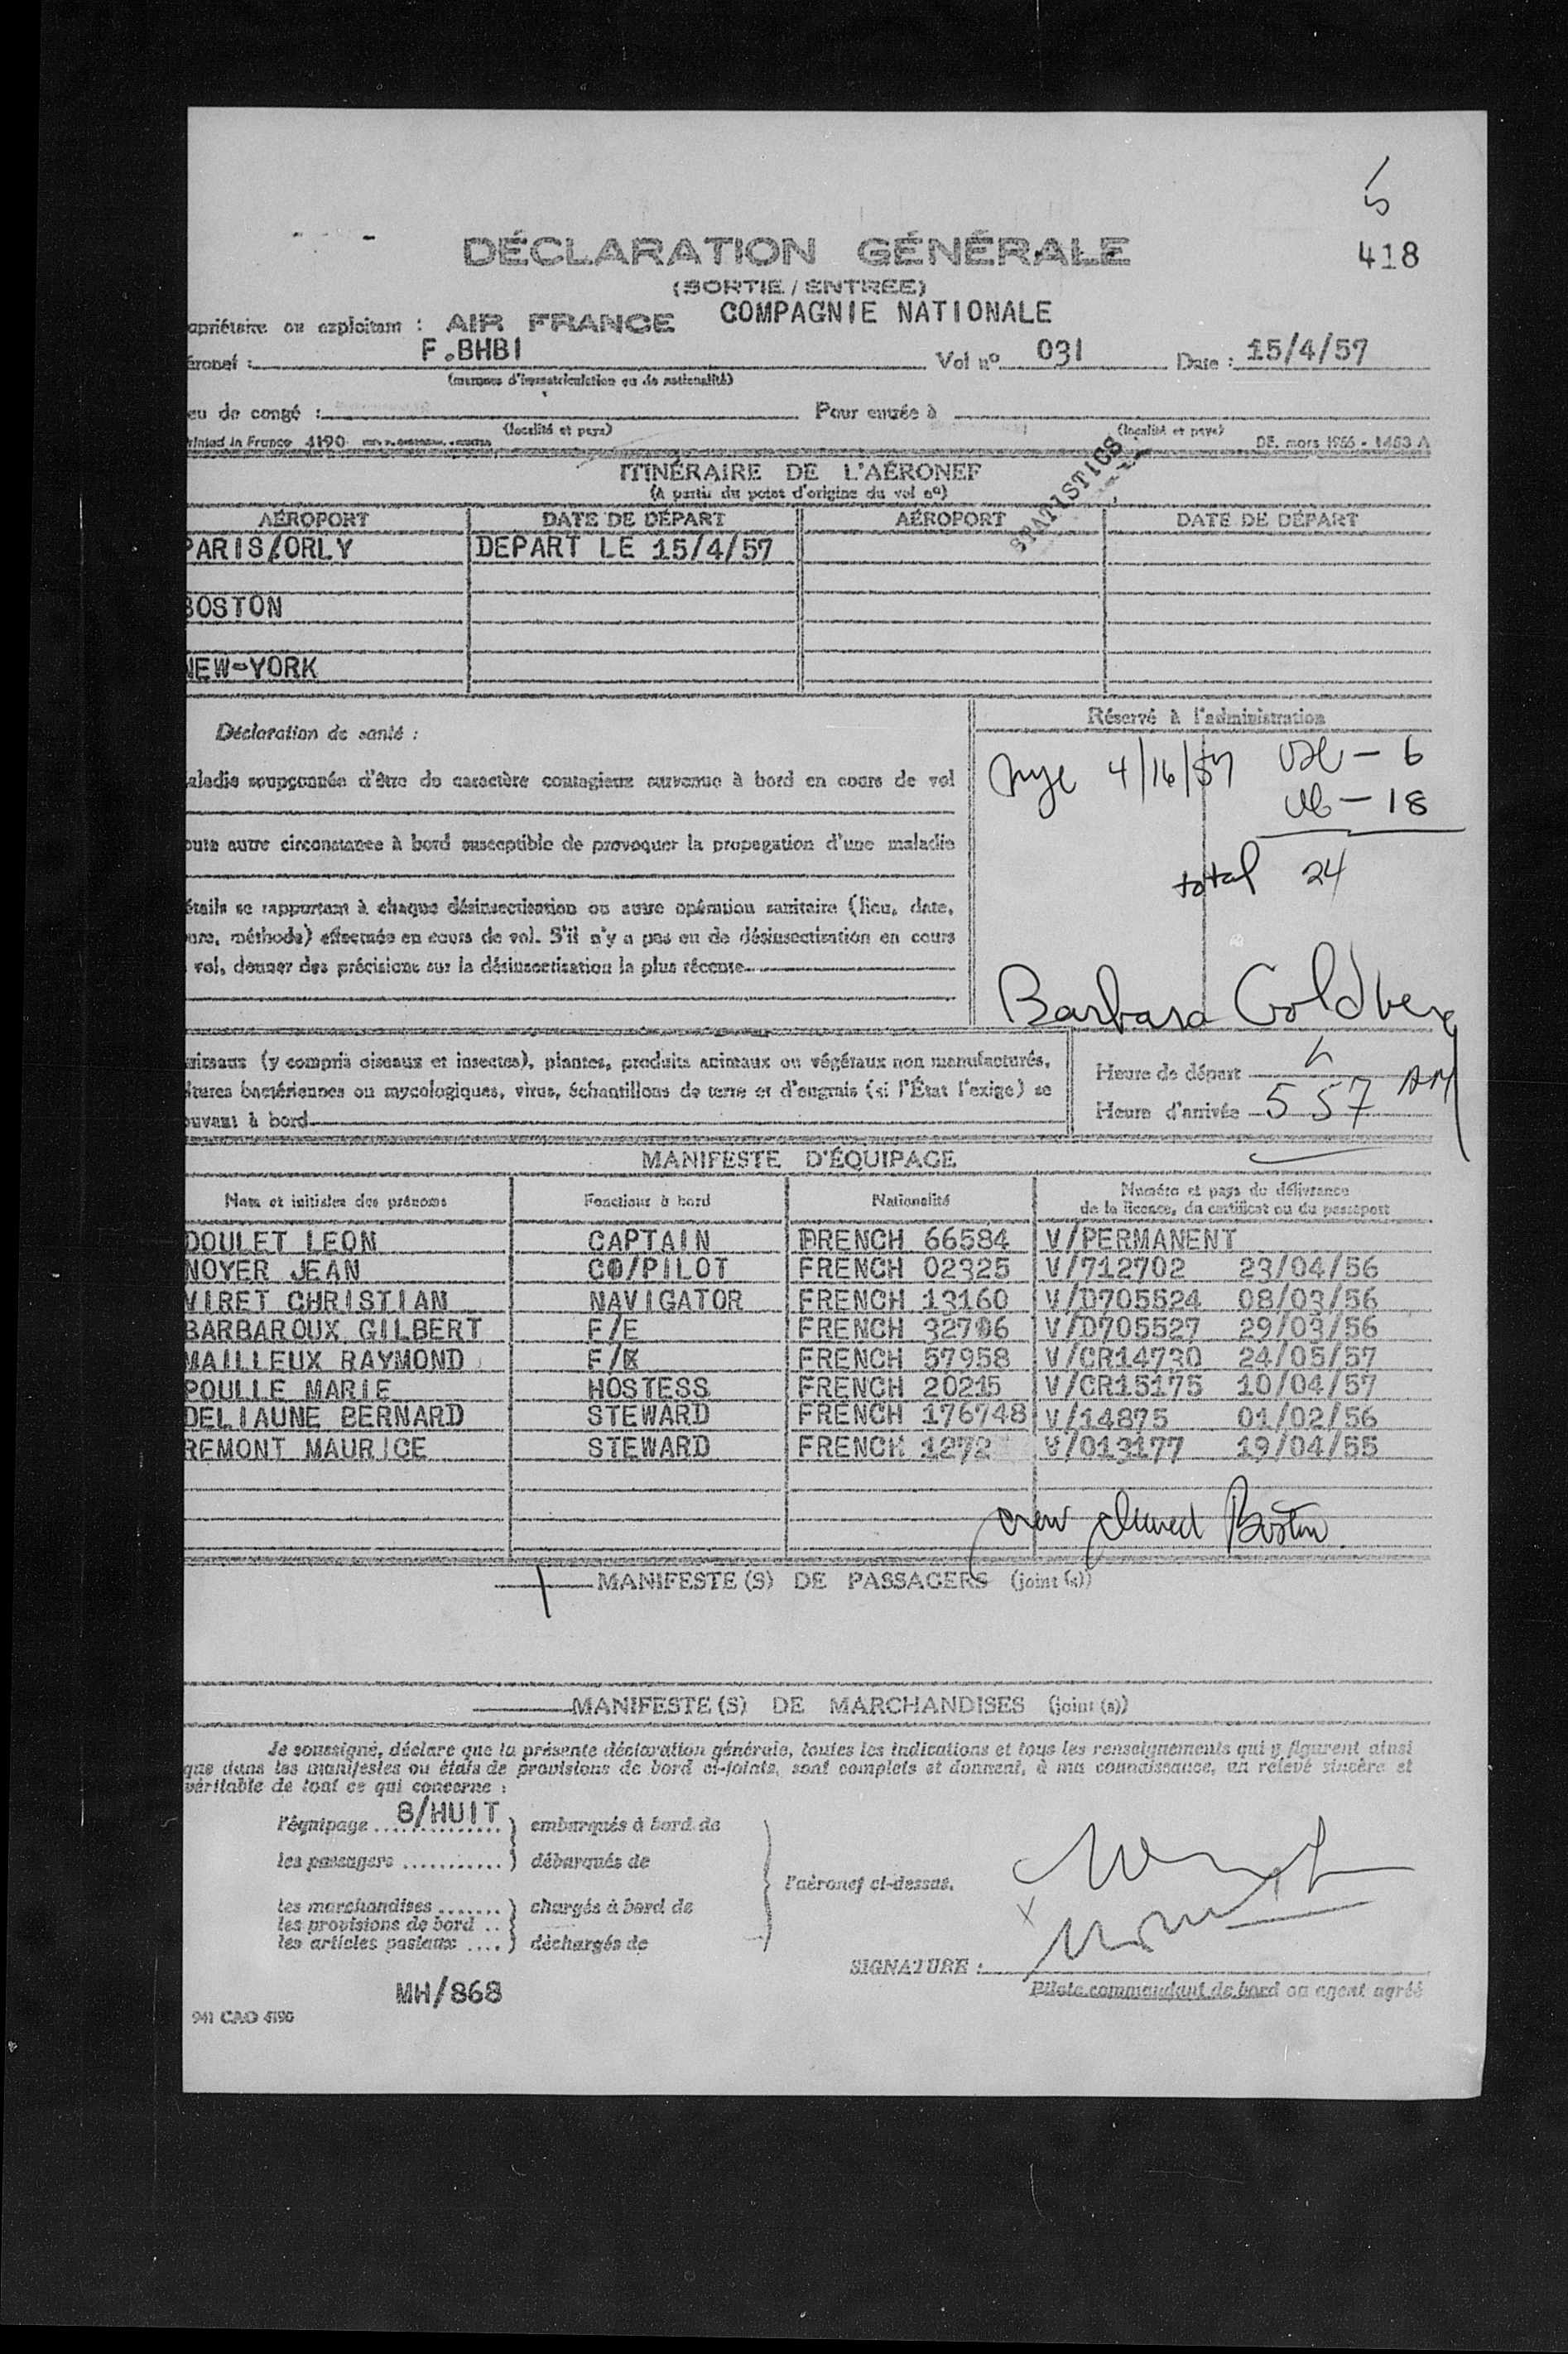 5
418
DÉCLARATION GÉNÉRALE
(SORTIE / ENTRÉE)
opriétaire ou exploitant : AIR FRANCE COMPAGNIE NATIONALE
éronef : F.BHBI Vol nº 031 Date : 15/4/57
(marques d'immatriculation ou de nationalité)
eu de congé : Pour entrée à
(localité et pays) (localité et pays)
Printed in France 4190 DE. mars 1956 - 1453 A
STATISTICS
ITINÉRAIRE DE L'AÉRONEF
(à partir du point d'origine du vol nº)
AÉROPORT DATE DE DÉPART AÉROPORT DATE DE DÉPART
PARIS/ORLY DEPART LE 15/4/57
BOSTON
NEW-YORK
Déclaration de santé :
aladie soupçonnée d'être de caractère contagieux survenue à bord en cours de vol
oute autre circonstance à bord susceptible de provoquer la propagation d'une maladie
étails se rapportant à chaque désinsectisation ou autre opération sanitaire (lieu, date,
ure, méthode) effectuée en cours de vol. S'il n'y a pas eu de désinsectisation en cours
vol, donner des précisions sur la désinsectisation la plus récente
Réservé à l'administration
nyc 4/16/57 USC - 6
- 18
total 24
Barbara Goldberg
nimaux (y compris oiseaux et insectes), plantes, produits animaux ou végétaux non manufacturés,
ltures bactériennes ou mycologiques, virus, échantillons de terre et d'engrais (si l'État l'exige) se
ouvant à bord
Heure de départ
Heure d'arrivée 5 57 AM
MANIFESTE D'ÉQUIPAGE
Nom et initiales des prénoms Fonctions à bord Nationalité Numéro et pays de délivrance
de la licence, du certificat ou du passeport
DOULET LEON CAPTAIN FRENCH 66584 V/PERMANENT
NOYER JEAN CO/PILOT FRENCH 02325 V/712702 23/04/56
VIRET CHRISTIAN NAVIGATOR FRENCH 13160 V/D705524 08/03/56
BARBAROUX GILBERT F/E FRENCH 32706 V/D705527 29/03/56
MAILLEUX RAYMOND F/E FRENCH 57958 V/CR14730 24/05/57
POULLE MARIE HOSTESS FRENCH 20215 V/CR15175 10/04/57
DELIAUNE BERNARD STEWARD FRENCH 176748 V/14875 01/02/56
REMONT MAURICE STEWARD FRENCH 1272 V/013177 19/04/55
crew cleared Boston
1 MANIFESTE(S) DE PASSAGERS (joint (s))
MANIFESTE(S) DE MARCHANDISES (joint (s))
Je soussigné, déclare que la présente déclaration générale, toutes les indications et tous les renseignements qui y figurent ainsi
que dans les manifestes ou états de provisions de bord ci-joints, sont complets et donnent, à ma connaissance, un relevé sincère et
véritable de tout ce qui concerne :
l'équipage 8/HUIT embarqués à bord de
les passagers débarqués de
l'aéronef ci-dessus.
les marchandises chargés à bord de
les provisions de bord
les articles postaux déchargés de
SIGNATURE :
Pilote commandant de bord ou agent agréé
MH/868
941 CAO 4190